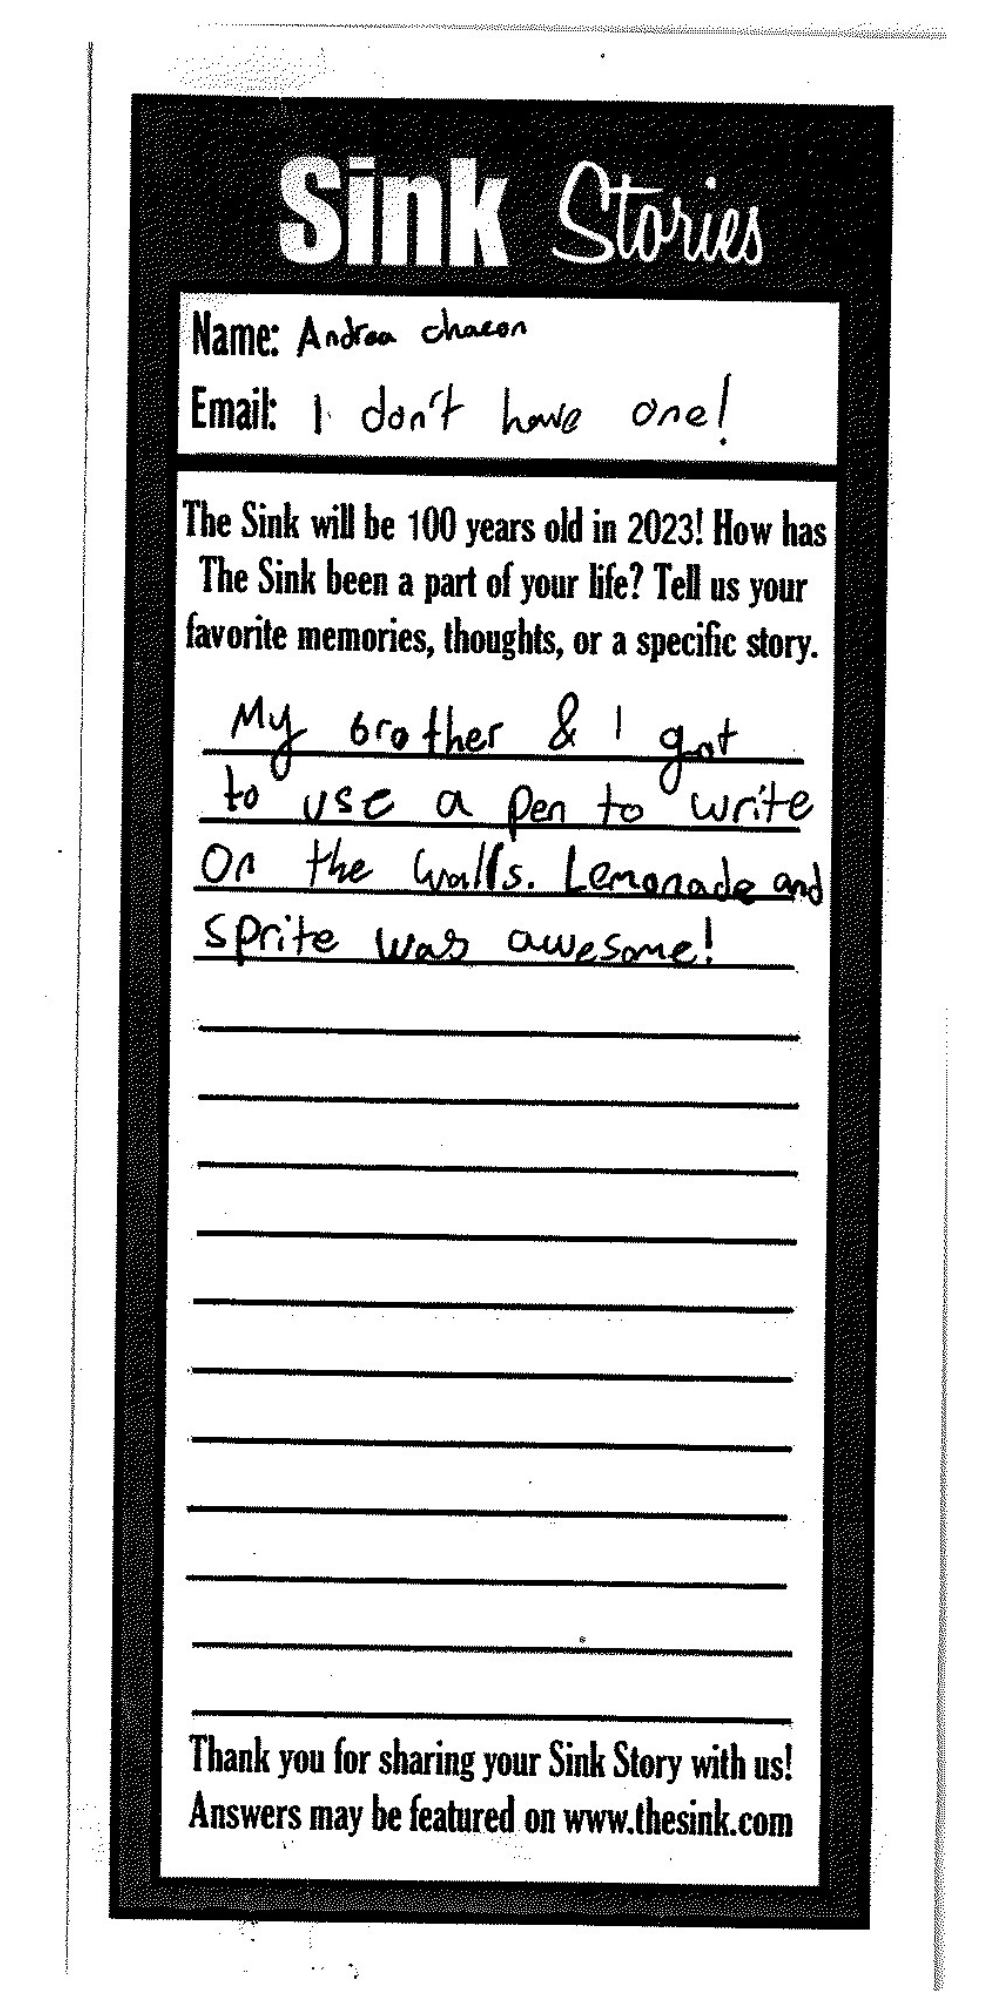 Sink Stories
Name: Andrea chacon
Email: I don't have one!
The Sink will be 100 years old in 2023! How has
The Sink been a part of your life? Tell us your
favorite memories, thoughts, or a specific story.
My brother & I got
to use a pen to write
on the walls. Lemonade and
sprite was awesome!
Thank you for sharing your Sink Story with us!
Answers may be featured on www.thesink.com